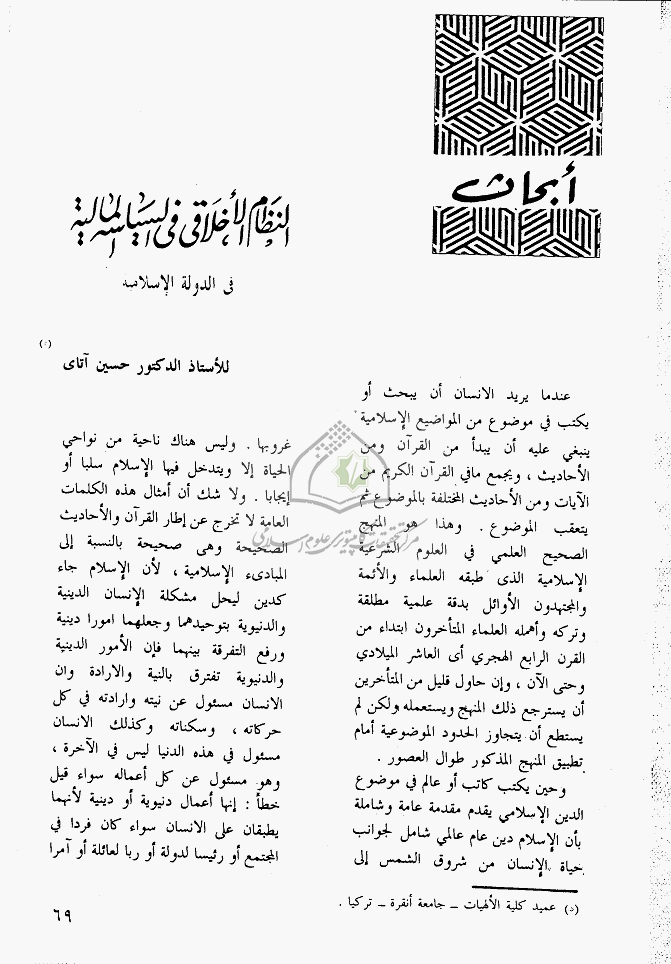 أبحاث
النظام الأخلاقي في السياسة المالية
في الدولة الإسلامية
(٥)
للأستاذ الدكتور حسين آتاى
عندما يريد الانسان أن يبحث أو
يكتب في موضوع من المواضيع الإسلامية
ينبغي عليه أن يبدأ من القرآن ومن
الأحاديث ، ويجمع مافي القرآن الكريم من
الآيات ومن الأحاديث المختلفة بالموضوع ثم
يتعقب الموضوع . وهذا هو المنهج
الصحيح العلمي في العلوم الشرعية
الإسلامية الذى طبقه العلماء والأئمة
والمجتهدون الأوائل بدقة علمية مطلقة
وتركه وأهمله العلماء المتأخرون ابتداء من
القرن الرابع الهجري أى العاشر الميلادي
وحتى الآن ، وإن حاول قليل من المتأخرين
أن يسترجع ذلك المنهج ويستعمله ولكن لم
يستطع أن يتجاوز الحدود الموضوعية أمام
تطبيق المنهج المذكور طوال العصور .
وحين يكتب كاتب أو عالم في موضوع
الدين الإسلامي يقدم مقدمة عامة وشاملة
بأن الإسلام دين عام عالمي شامل لجوانب
حياة الإنسان من شروق الشمس إلى
غروبها . وليس هناك ناحية من نواحي
الحياة إلا ويتدخل فيها الإسلام سلبا أو
إيجابا . ولا شك أن أمثال هذه الكلمات
العامة لا تخرج عن إطار القرآن والأحاديث
الصحيحة وهى صحيحة بالنسبة إلى
المبادىء الإسلامية ، لأن الإسلام جاء
كدين ليحل مشكلة الإنسان الدينية
والدنيوية بتوحيدهما وجعلهما امورا دينية
ورفع التفرقة بينهما فإن الأمور الدينية
والدنيوية تفترق بالنية والارادة وان
الانسان مسئول عن نيته وارادته في كل
حركاته ، وسكناته وكذلك الانسان
مسئول في هذه الدنيا ليس في الآخرة ،
وهو مسئول عن كل أعماله سواء قيل
خطأ : إنها أعمال دنيوية أو دينية لأنهما
يطبقان على الانسان سواء كان فردا في
المجتمع أو رئيسا لدولة أو ربا لعائلة أو آمرا
(٥) عميد كلية الألهيات – جامعة أنقرة – تركيا .
٦٩
مركز تحقيقات كامپيوترى علوم اسلامى